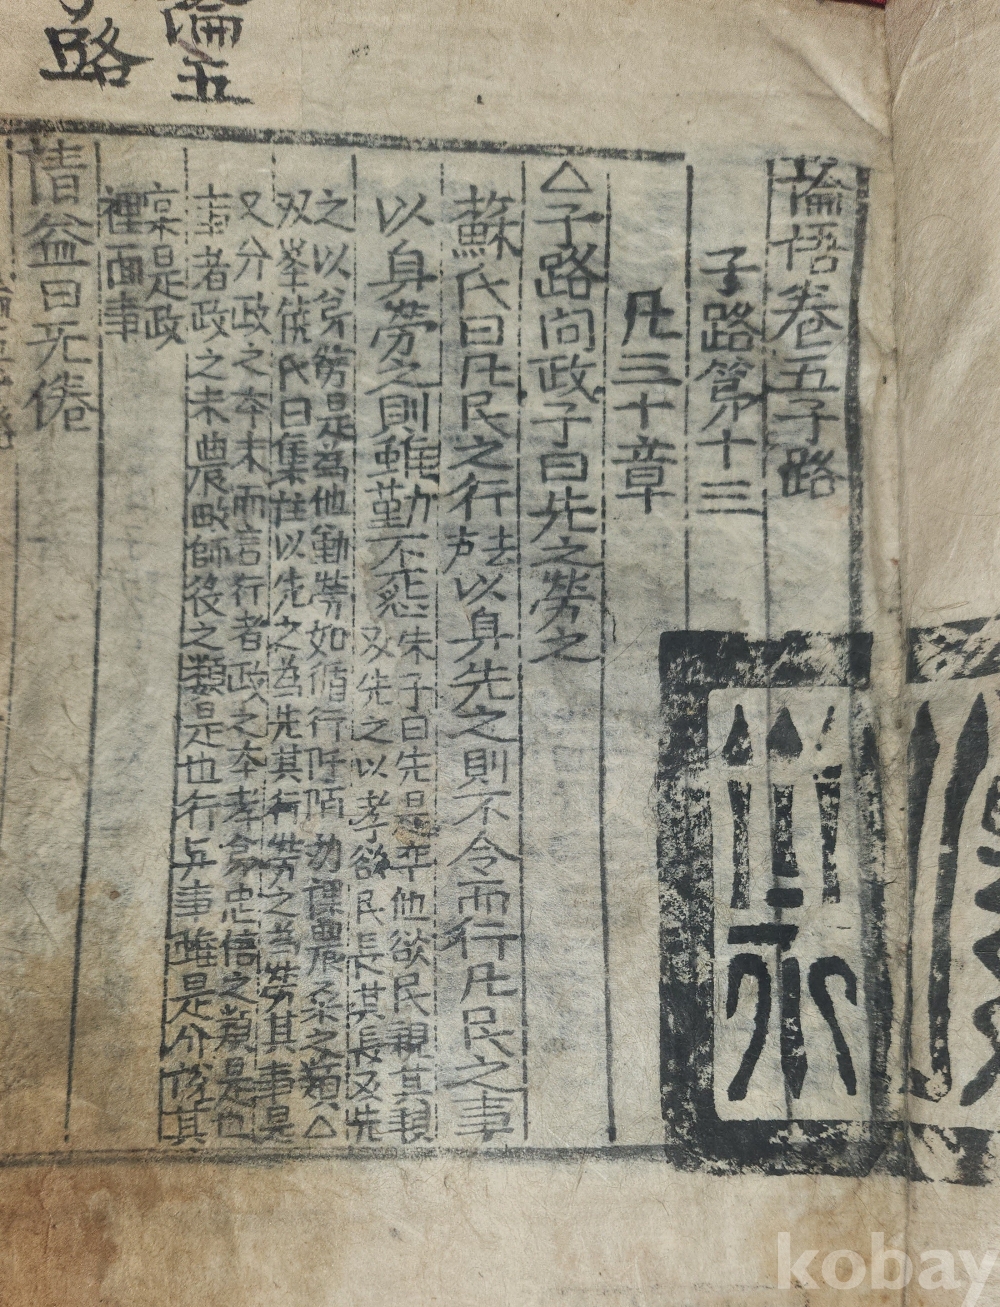 論五
路
論語卷五子路
子路第十三
凡三十章
△子路问政子曰先之勞之
蘇氏曰凡民之行㳒以身先之則不令而行凡民之事
以身勞之則雖勤不㤪朱子曰先是率他欲民親其親
又先之以孝欲民長其長又先
之以弟勞是為他勤勞如循行阡陌勸課農桑之類△
双峯饒氏曰集註以先之為先其行勞之為勞其事是
又分政之本末而言行者政之本孝弟忠信之類是也
事者政之末農畝師役之類是也行与事雖是分後其
實是政
裡面事
請益曰无倦
kobay